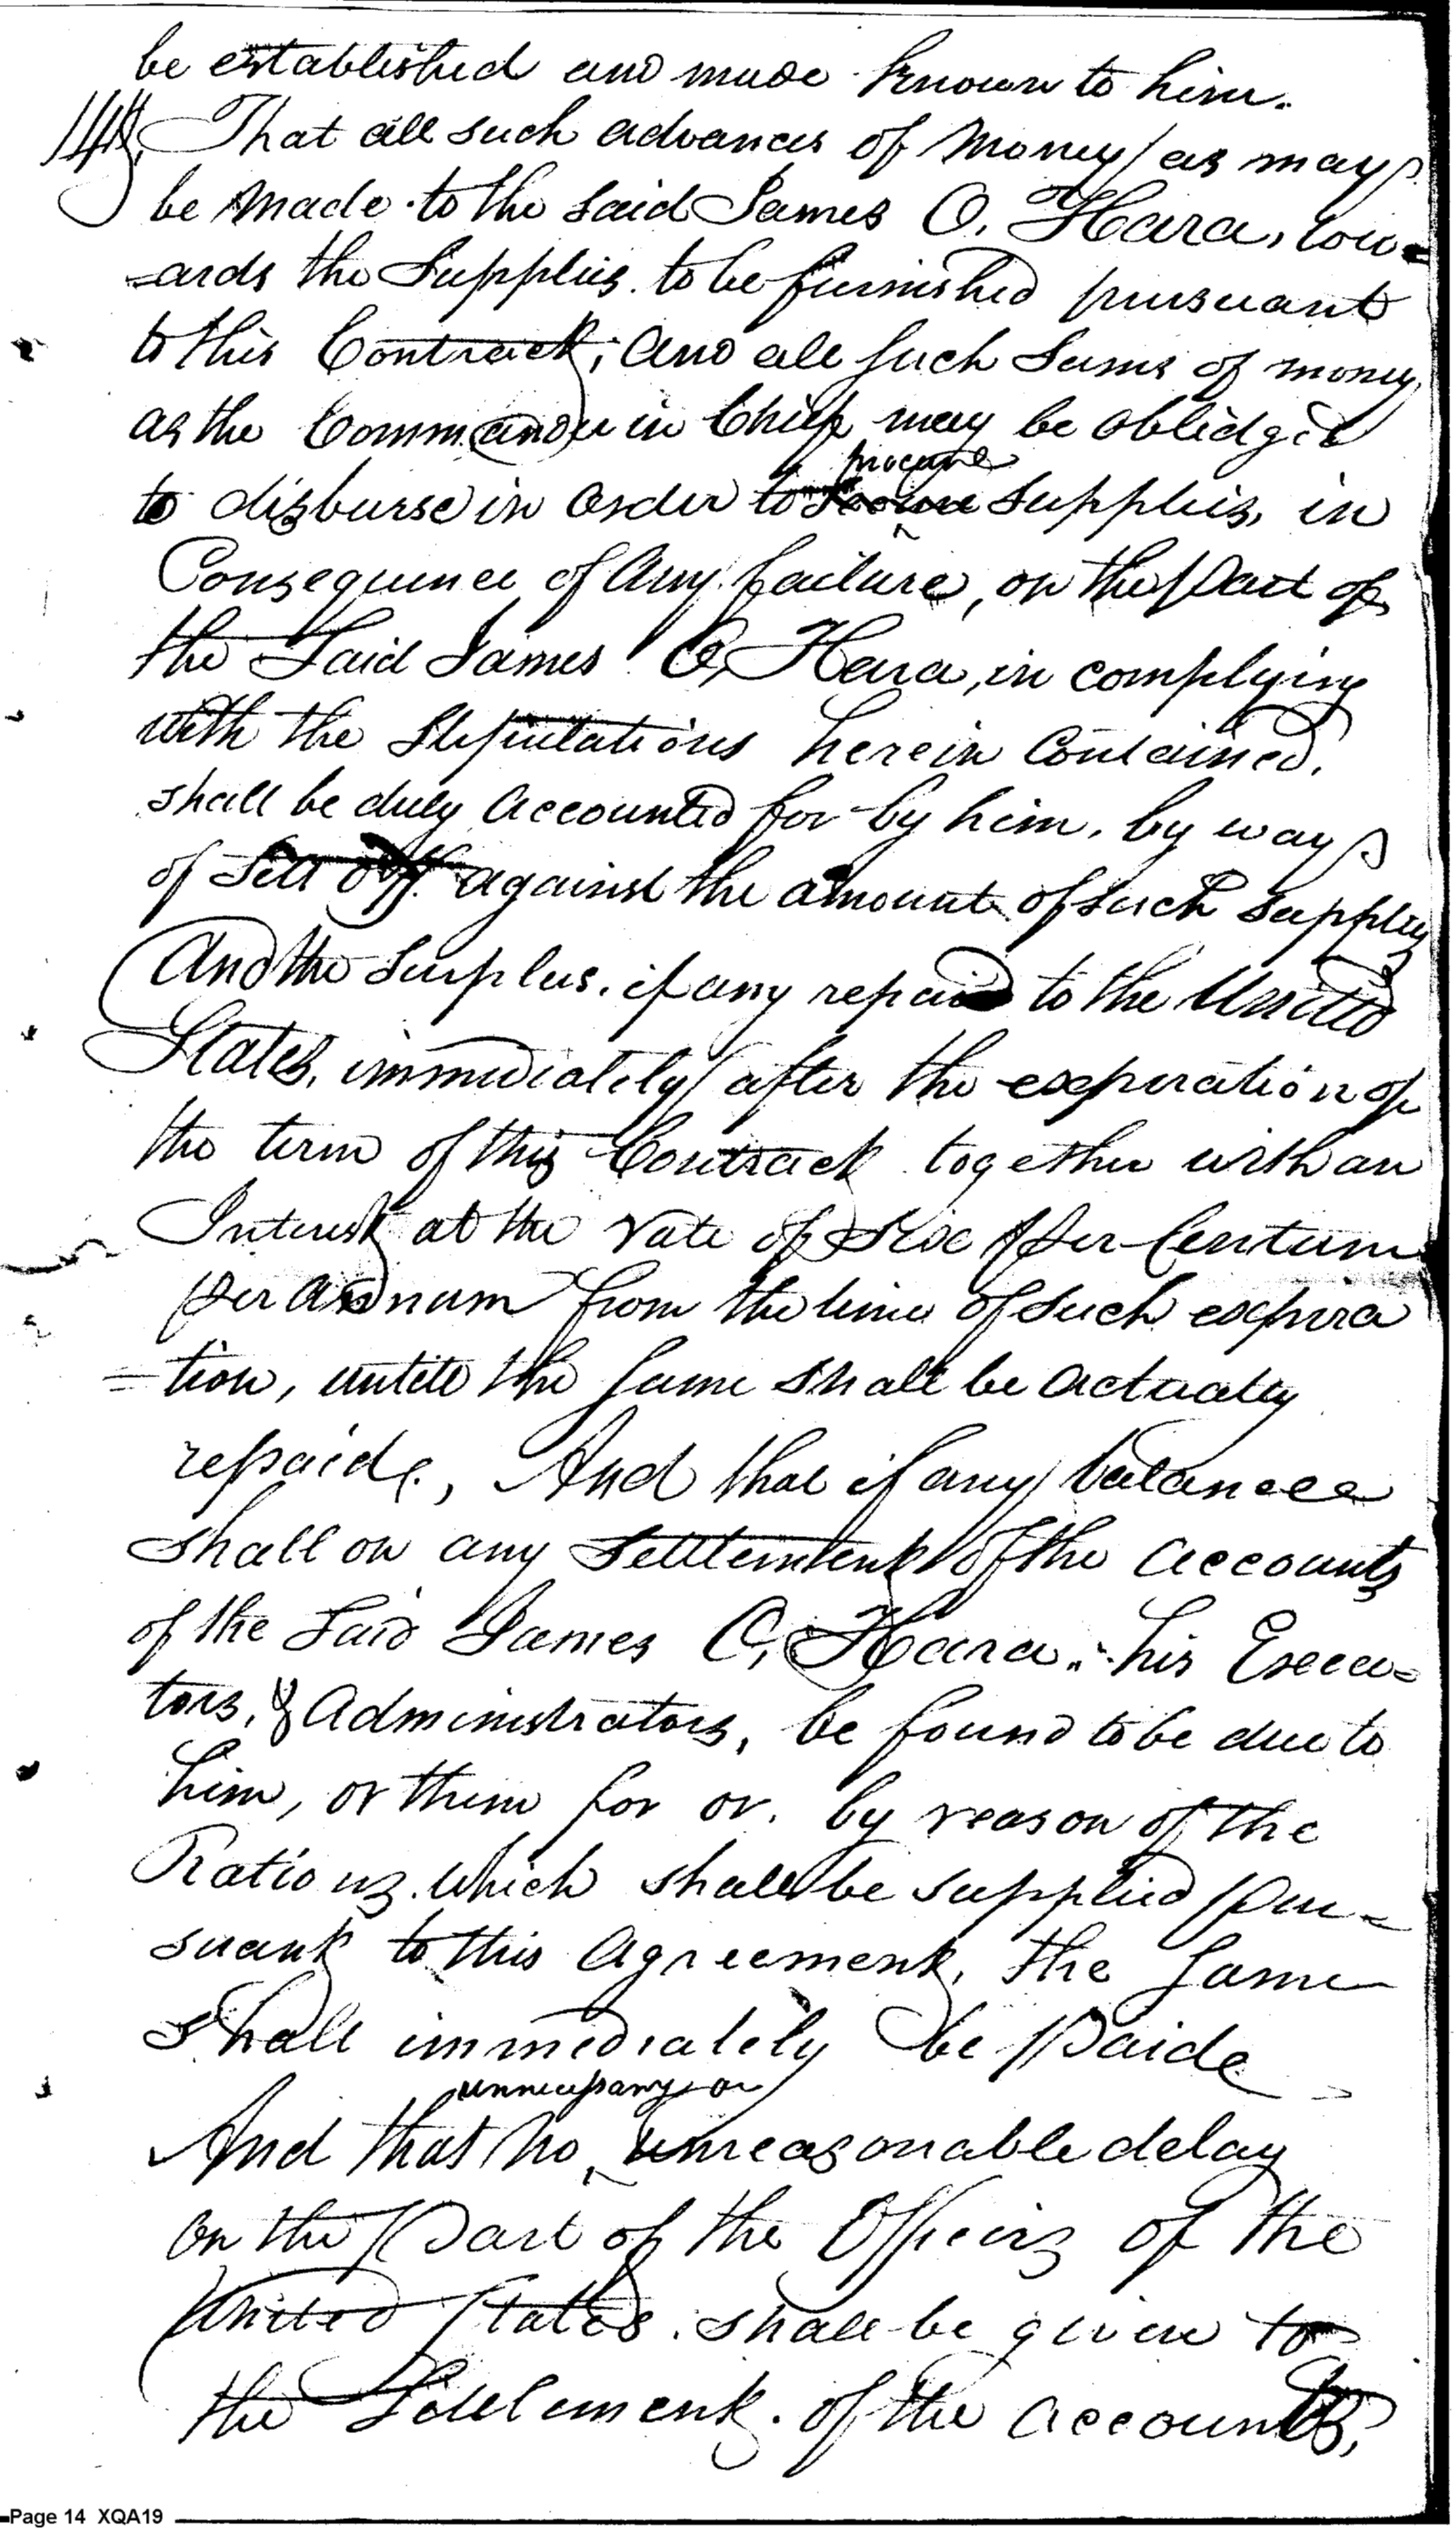 be established and made known to him.
14th, That all such advances of Money as may
be made to the said James O. Hara, tow=
=ards the Supplies to be furnished pursuant
to this Contract; and all such Sums of money
as the Commander in Chief may be oblidged
procure
to disburse in order to supplies, in
Consequence of any failure, on the part of
the Said James O, Hara, in complying
with the Stipulations herein Contained,
shall be duly accounted for by him, by way
of Sett off against the amount of such Supplies
And the Surplus, if any repaid to the United
States, immediately after the expiration of
the term of this Contract together with an
Interest at the rate of Six per Centum
per annum from the time of such expira
=tion, untill the same shall be actually
repaid, And that if any balance
shall on any Settlement of the accounts
of the Said James O, Hara, his Execu=
tors, & Administrators, be found to be due to
him, or them for or by reason of the
Rations which shall be supplied pur=
suant to this Agreement, the same
shall immediately be paid
unnecessary or
And that no unreasonable delay
on the part of the Officers of the
United States shall be given to
the Settlement of the accounts,
Page 14 XQA19